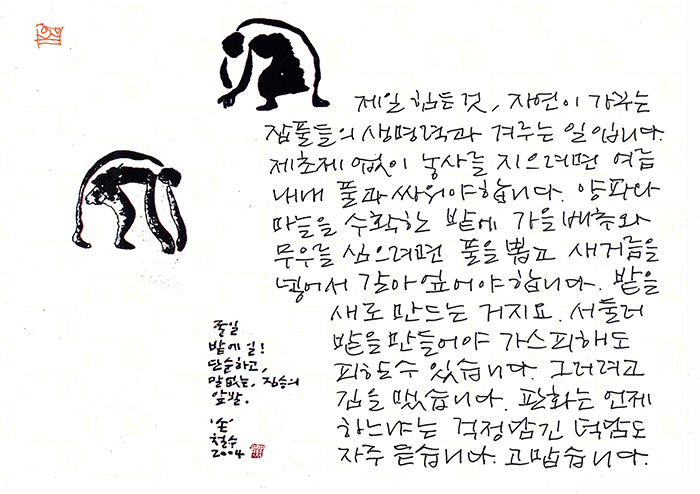 제일 힘든 것, 자연이 가꾸는
잡풀들의 생명력과 겨루는 일입니다.
제초제 없이 농사를 지으려면 여름
내내 풀과 싸워야합니다. 양파와
마늘을 수확한 밭에 가을 배추와
무우를 심으려면 풀을 뽑고 새거름을
넣어서 갈아 엎어야합니다. 밭을
새로 만드는 거지요. 서둘러
밭을 만들어야 가스피해도
피할 수 있습니다. 그러려고
김을 맸습니다. 판화는 언제
하느냐는 걱정담긴 덕담도
자주 듣습니다. 고맙습니다.
풀일
밭에 일!
단순하고,
말없는, 짐승의
앞발.
'손'
철수
2004